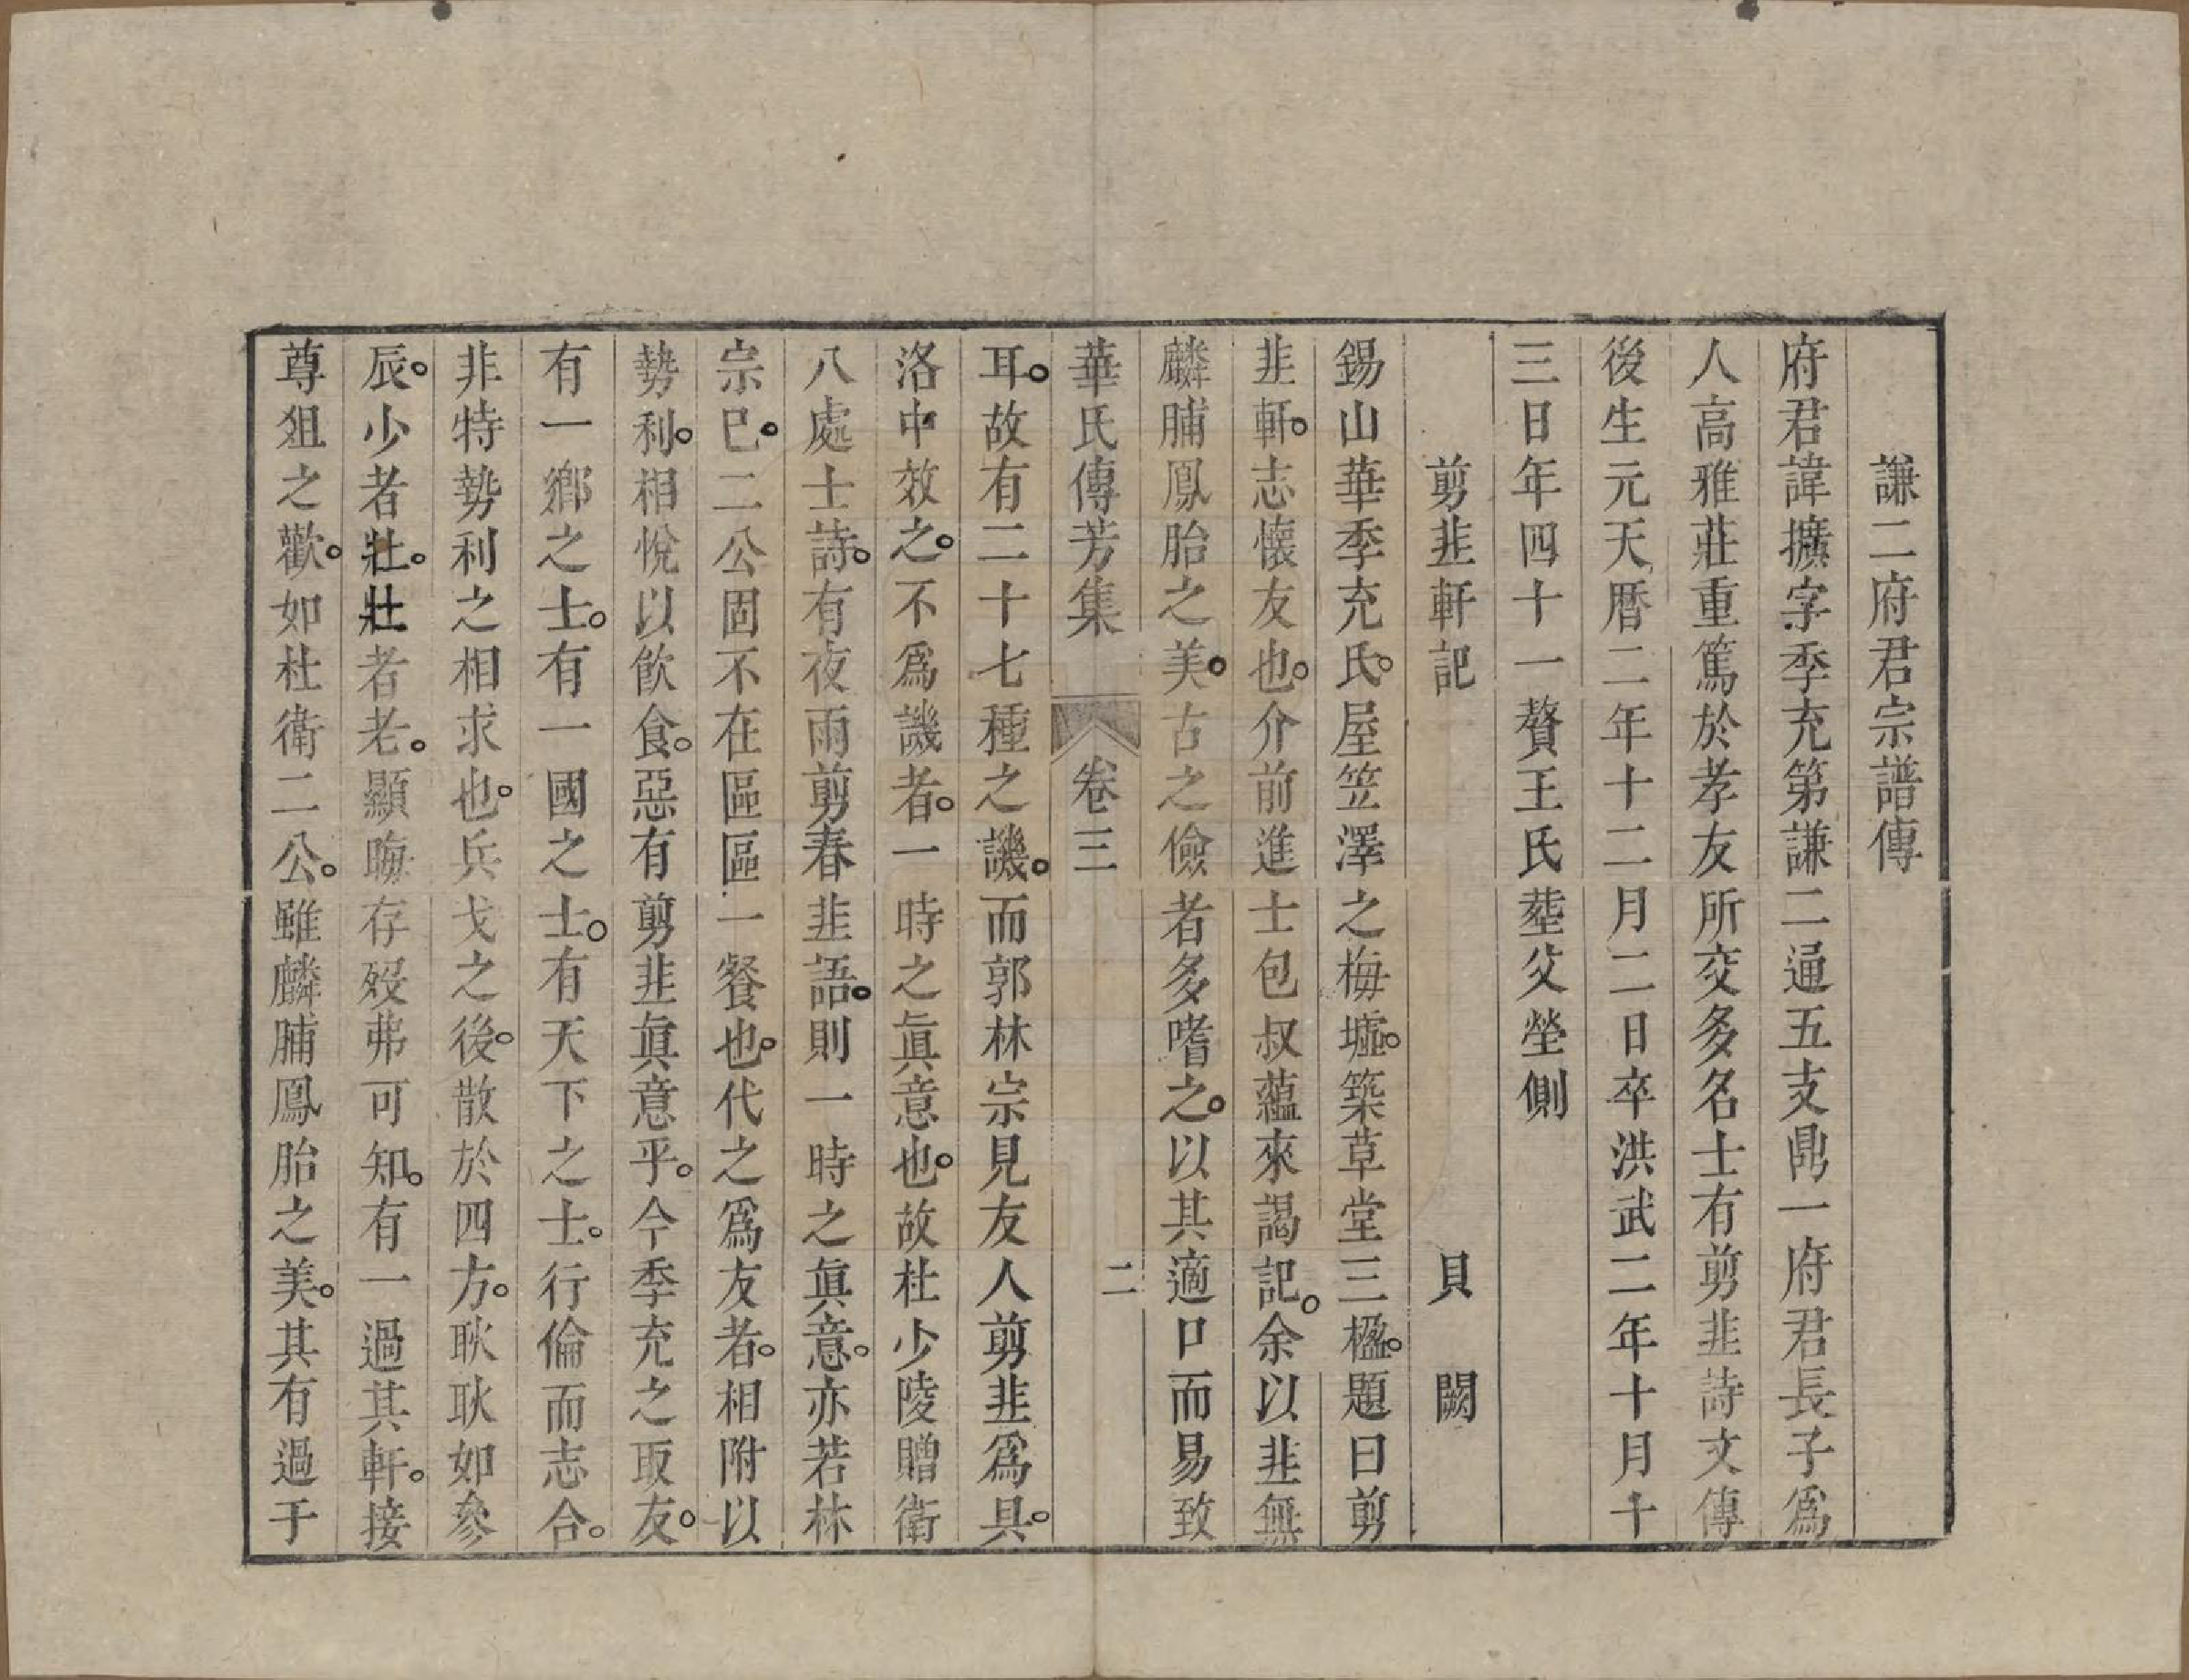 謙二府君宗譜傳
府君諱擴字季充第謙二通五支鼎一府君長子爲
人高雅莊重篤於孝友所交多名士有剪韭詩文傳
後生元天曆二年十二月二日卒洪武二年十月十
三日年四十一贅王氏塟父塋側
剪韭軒記　貝闕
錫山華季充氏。屋笠澤之梅墟。築草堂三楹。題曰剪
韭軒。志懷友也。介前進士包叔蘊來謁記。余以韭無
麟脯鳳胎之美。古之儉者多嗜之。以其適口而易致
華氏傳芳集　卷三　二
耳。故有二十七種之譏。而郭林宗見友人剪韭爲具。
洛中效之。不爲譏者。一時之眞意也。故杜少陵贈衛
八處士詩。有夜雨剪春韭語。則一時之眞意。亦若林
宗已。二公固不在區區一餐也。代之爲友者。相附以
勢利。相悅以飮食。惡有剪韭眞意乎。今季充之取友。
有一鄉之士。有一國之士。有天下之士。行倫而志合。
非特勢利之相求也。兵戈之後。散於四方。耿耿如參
辰。少者壯。壯者老。顯晦存歿弗可知。有一過其軒。接
尊俎之歡。如杜衛二公。雖麟脯鳳胎之美。其有過于